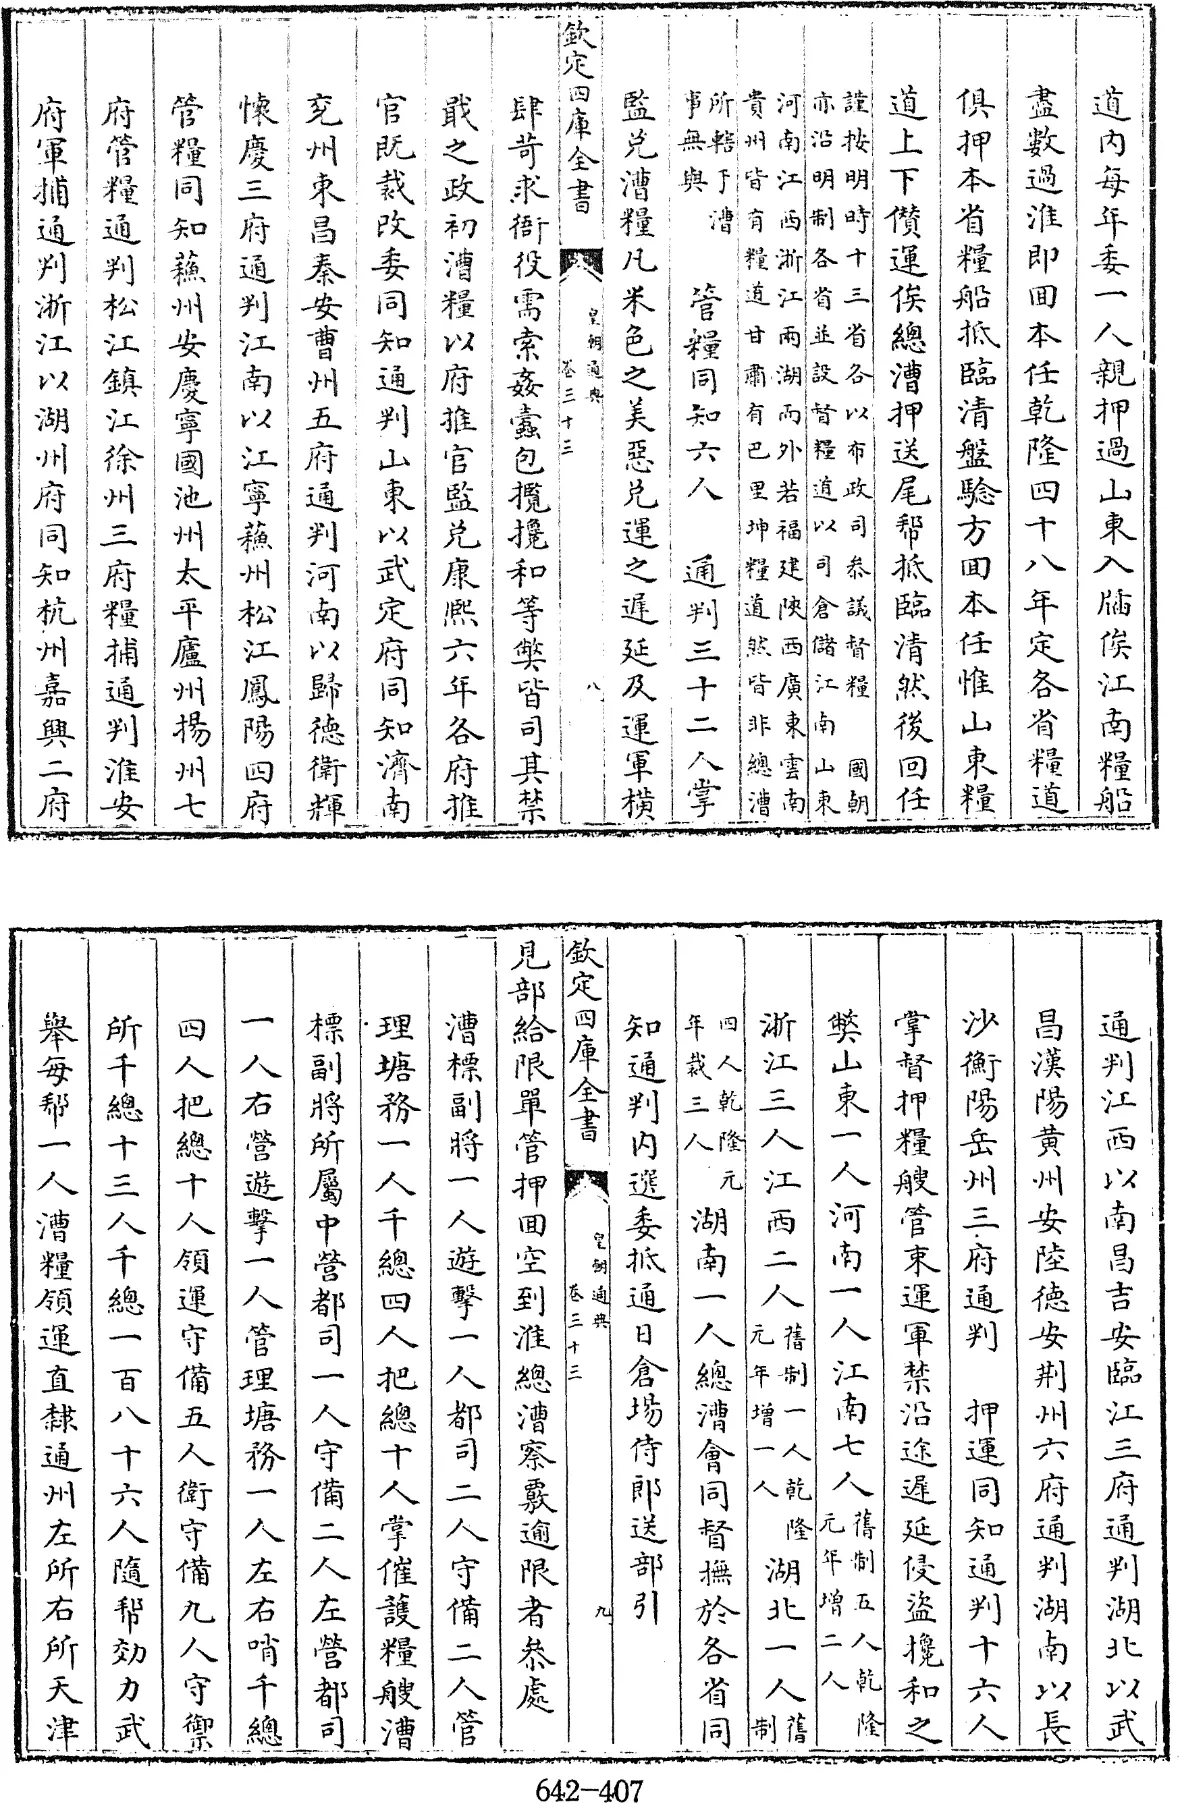 道内每年委一人親押過山東入牐俟江南糧船
盡數過淮即回本任乾隆四十八年定各省糧道
俱押本省糧船抵臨清盤驗方回本任惟山東糧
道上下儧運俟總漕押送尾幇抵臨清然後回任
謹按明時十三省各以布政司叅議督糧　國朝
亦沿明制各省並設督糧道以司倉儲江南山東
河南江西浙江兩湖而外若福建陜西廣東雲南
貴州皆有糧道甘肅有巴里坤糧道然皆非總漕
所轄于漕
事無與　管糧同知六人　通判三十二人掌
監兌漕糧凡米色之美惡兌運之遲延及運軍橫
欽定四庫全書　皇朝通典　卷三十三　八
肆苛求衙役需索姦蠹包攬攙和等弊皆司其禁
戢之政初漕糧以府推官監兌康熙六年各府推
官既裁改委同知通判山東以武定府同知濟南
兖州東昌泰安曹州五府通判河南以歸德衛輝
懷慶三府通判江南以江寧蘓州松江鳳陽四府
管糧同知蘓州安慶寧國池州太平廬州揚州七
府管糧通判松江鎮江徐州三府糧捕通判淮安
府軍捕通判浙江以湖州府同知杭州嘉興二府
通判江西以南昌吉安臨江三府通判湖北以武
昌漢陽黄州安陸德安荆州六府通判湖南以長
沙衡陽岳州三府通判　押運同知通判十六人
掌督押糧艘管束運軍禁沿途遲延侵盜攙和之
弊山東一人河南一人江南七人舊制五人乾隆
元年增二人
浙江三人江西二人舊制一人乾隆
元年增一人湖北一人舊制
四人乾隆元
年裁三人湖南一人總漕會同督撫於各省同
知通判内選委抵通日倉塲侍郎送部引
欽定四庫全書　皇朝通典　卷三十三　九
見部給限單管押回空到淮總漕察覈逾限者叅處
漕標副將一人遊擊一人都司二人守備二人管
理塘務一人千總四人把總十人掌催護糧艘漕
標副將所屬中營都司一人守備二人左營都司
一人右營遊擊一人管理塘務一人左右哨千總
四人把總十人領運守備五人衛守備九人守禦
所千總十三人千總一百八十六人隨幇効力武
舉每幇一人漕糧領運直隸通州左所右所天津
642-407